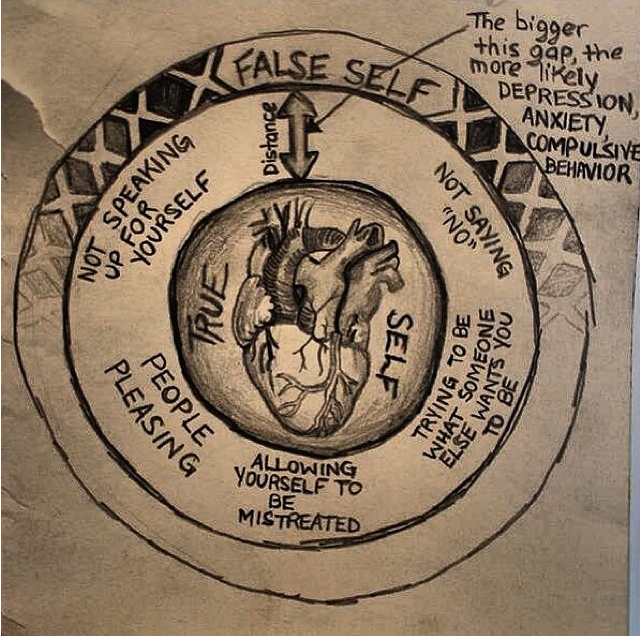 The bigger
this gap, the
more likely
DEPRESSION,
ANXIETY,
COMPULSIVE
BEHAVIOR
FALSE SELF
Distance
NOT SPEAKING
UP FOR
YOURSELF
NOT SAYING
"NO"
TRUE
SELF
TRYING TO BE
WHAT SOMEONE
ELSE WANTS YOU
TO BE
PEOPLE
PLEASING
ALLOWING
YOURSELF TO
BE
MISTREATED